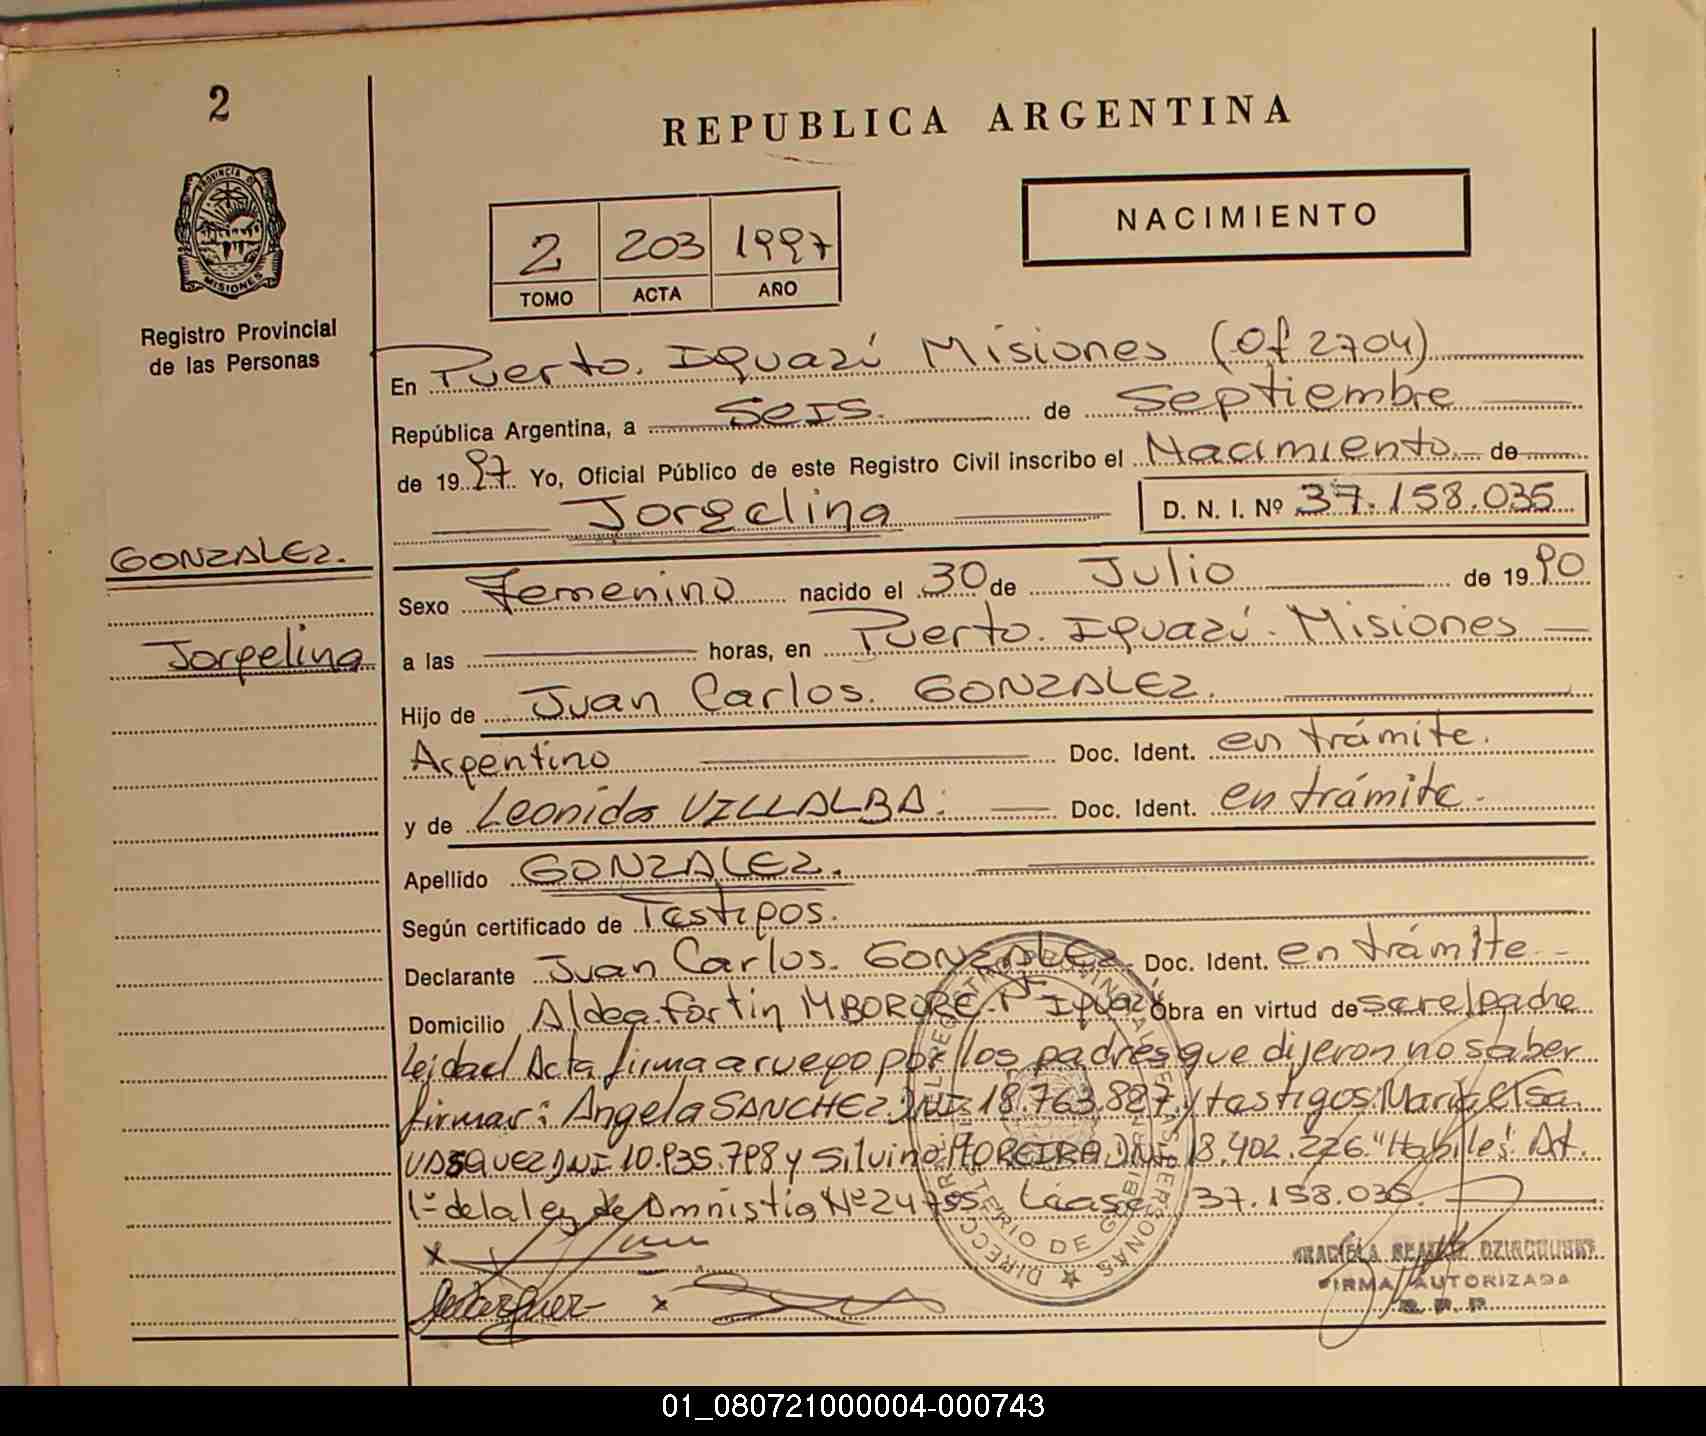 2
REPUBLICA ARGENTINA
PROVINCIA DE
MISIONES
Registro Provincial
de las Personas
2 203 1997
TOMO ACTA AÑO
NACIMIENTO
En Puerto. Iguazú Misiones (Of 2704)
República Argentina, a Seis. de Septiembre
de 1997 Yo, Oficial Público de este Registro Civil inscribo el Nacimiento de
Jorgelina D. N. I. Nº 37.158.035
GONZALEZ.
Jorgelina
Sexo Femenino nacido el 30 de Julio de 1990
a las horas, en Puerto. Iguazú. Misiones
Hijo de Juan Carlos. GONZALEZ.
Argentino Doc. Ident. en trámite.
y de Leonida VILLALBA. Doc. Ident. en trámite.
Apellido GONZALEZ.
Según certificado de Testigos.
Declarante Juan Carlos. GONZALEZ Doc. Ident. en trámite
Domicilio Aldea Fortin MBORORE. Pto Iguazú Obra en virtud de ser el padre
Leida el Acta firma a ruego por los padres que dijeron no saber
firmar: Angela SANCHEZ DNI 18.763.887 y testigos: Maria Elsa
VASQUEZ DNI 10.935.798 y Silvino MOREIRA DNI 18.402.226 "Habiles". Art.
1º de la ley de Amnistia Nº 24755. Léase 37.158.035.
x
x
FIRMA AUTORIZADA
R. P. P.
01_080721000004-000743